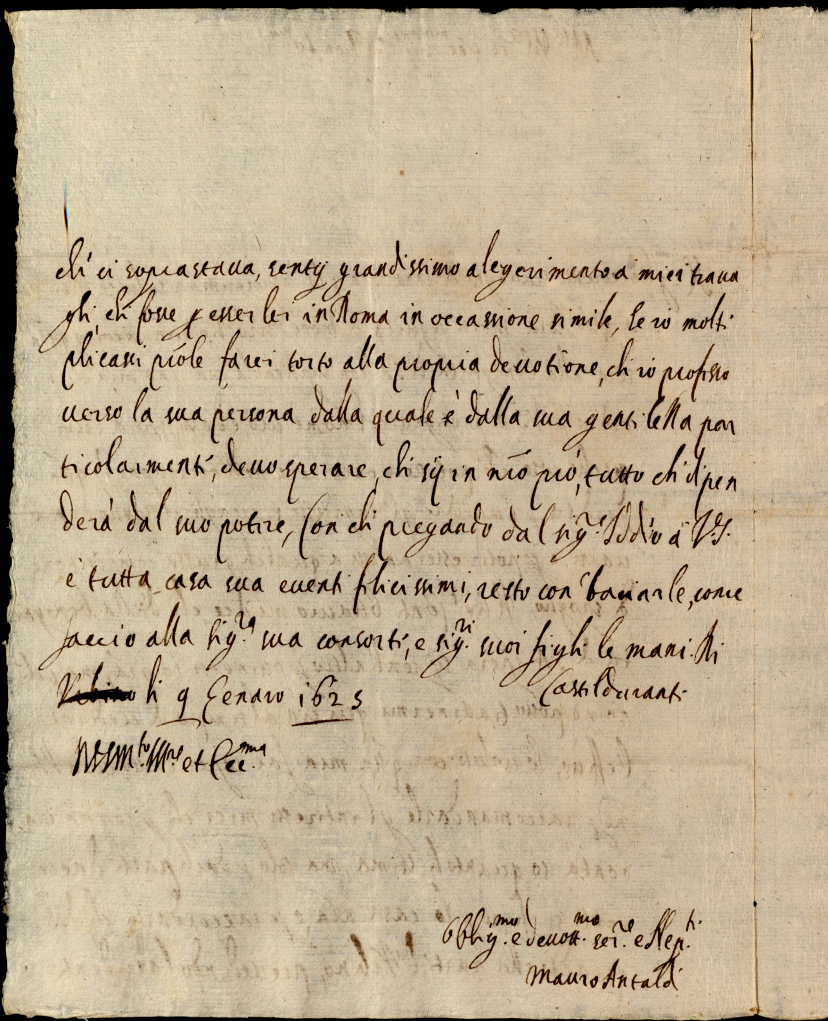 chè ci soprastaua, sentij grandissimo alegerimento à miei traua
gli, chè fosse p esser lei in Roma in occassione simile, Se io molti
plicassi farei torto alla propria deuotione, chè io professo
uerso la sua persona dalla quale è dalla sua gentilezza par
ticolarmentè, deuo sperare, chè sij in mio tutto chè dipen
derà dal suo potere, Con chè pregando dal sig.re Iddio à V.S.
è tutta casa sua euenti felicissimi, resto con bacciarle, come
faccio alla Sig.ra sua consortè, e sig.ri suoi figli le mani. Di
Vrbino li 9 Genaro 1625 Casteldurantè
Ill.re et Ecc.ma
Oblig.mo e deuott.mo ser.re e
Mauro Antaldi